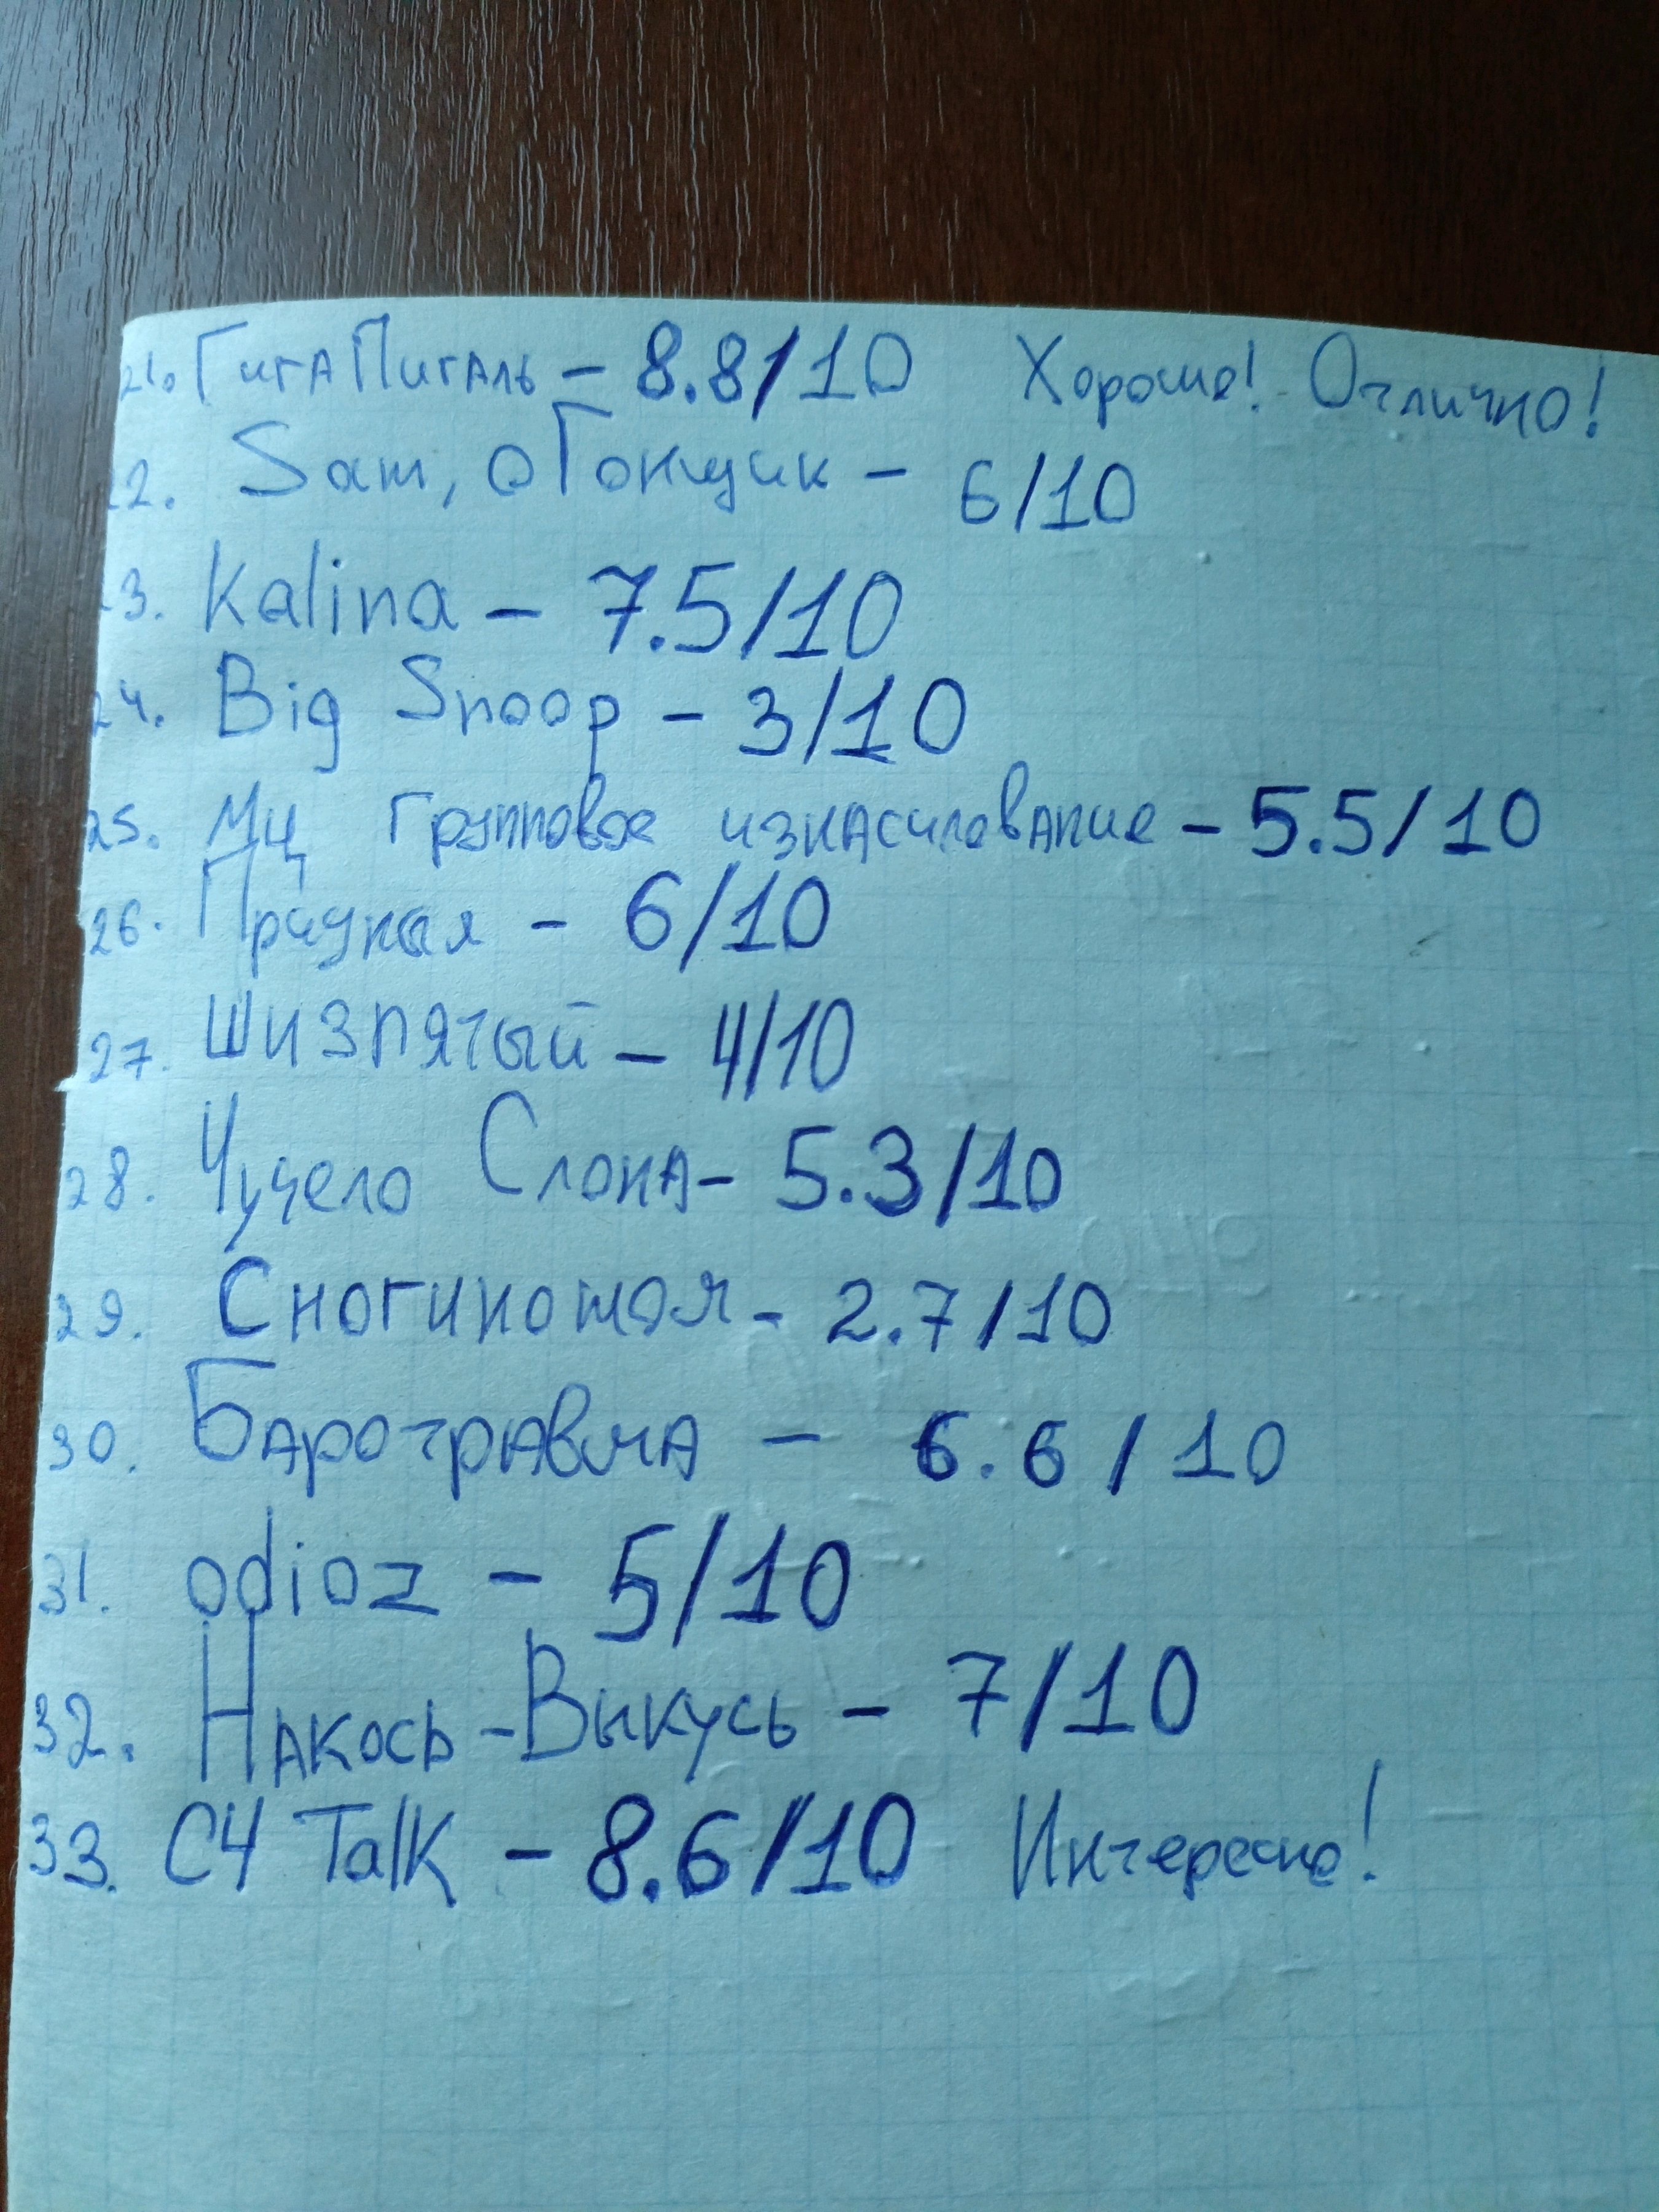 21. ГигАПигАль - 8.8/10 Хорошо! Отлично!
22. Sam, оГонщик - 6/10
23. Kalina - 7.5/10
24. Big Snoop - 3/10
25. МЦ Групповое изнАсиловАние - 5.5/10
26. - 6/10
27. Шизпятый - 4/10
28. Чучело СлонА - 5.3/10
29. - 2.7/10
30. БАротрАвмА - 6.6/10
31. odioz - 5/10
32. НАкось-Выкусь - 7/10
33. C4 Talk - 8.6/10 Интересно!